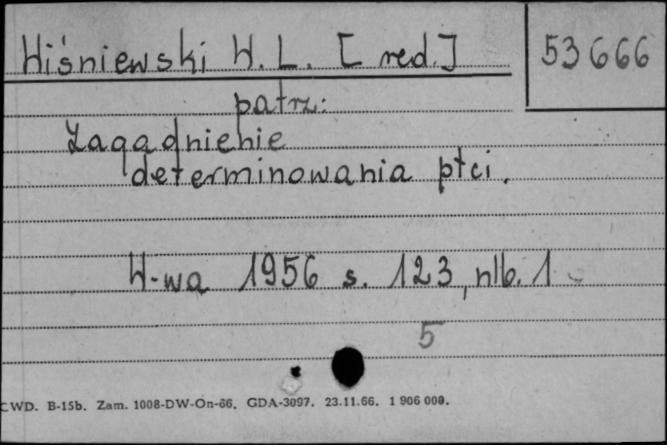 Wiśniewski W. L. [red.]
53666
patrz:
Zagadnienie
determinowania płci.
W-wa 1956 s. 123, nlb. 1
5
CWD. B-15b. Zam. 1008-DW-On-66. GDA-3097. 23.11.66. 1 906 000.